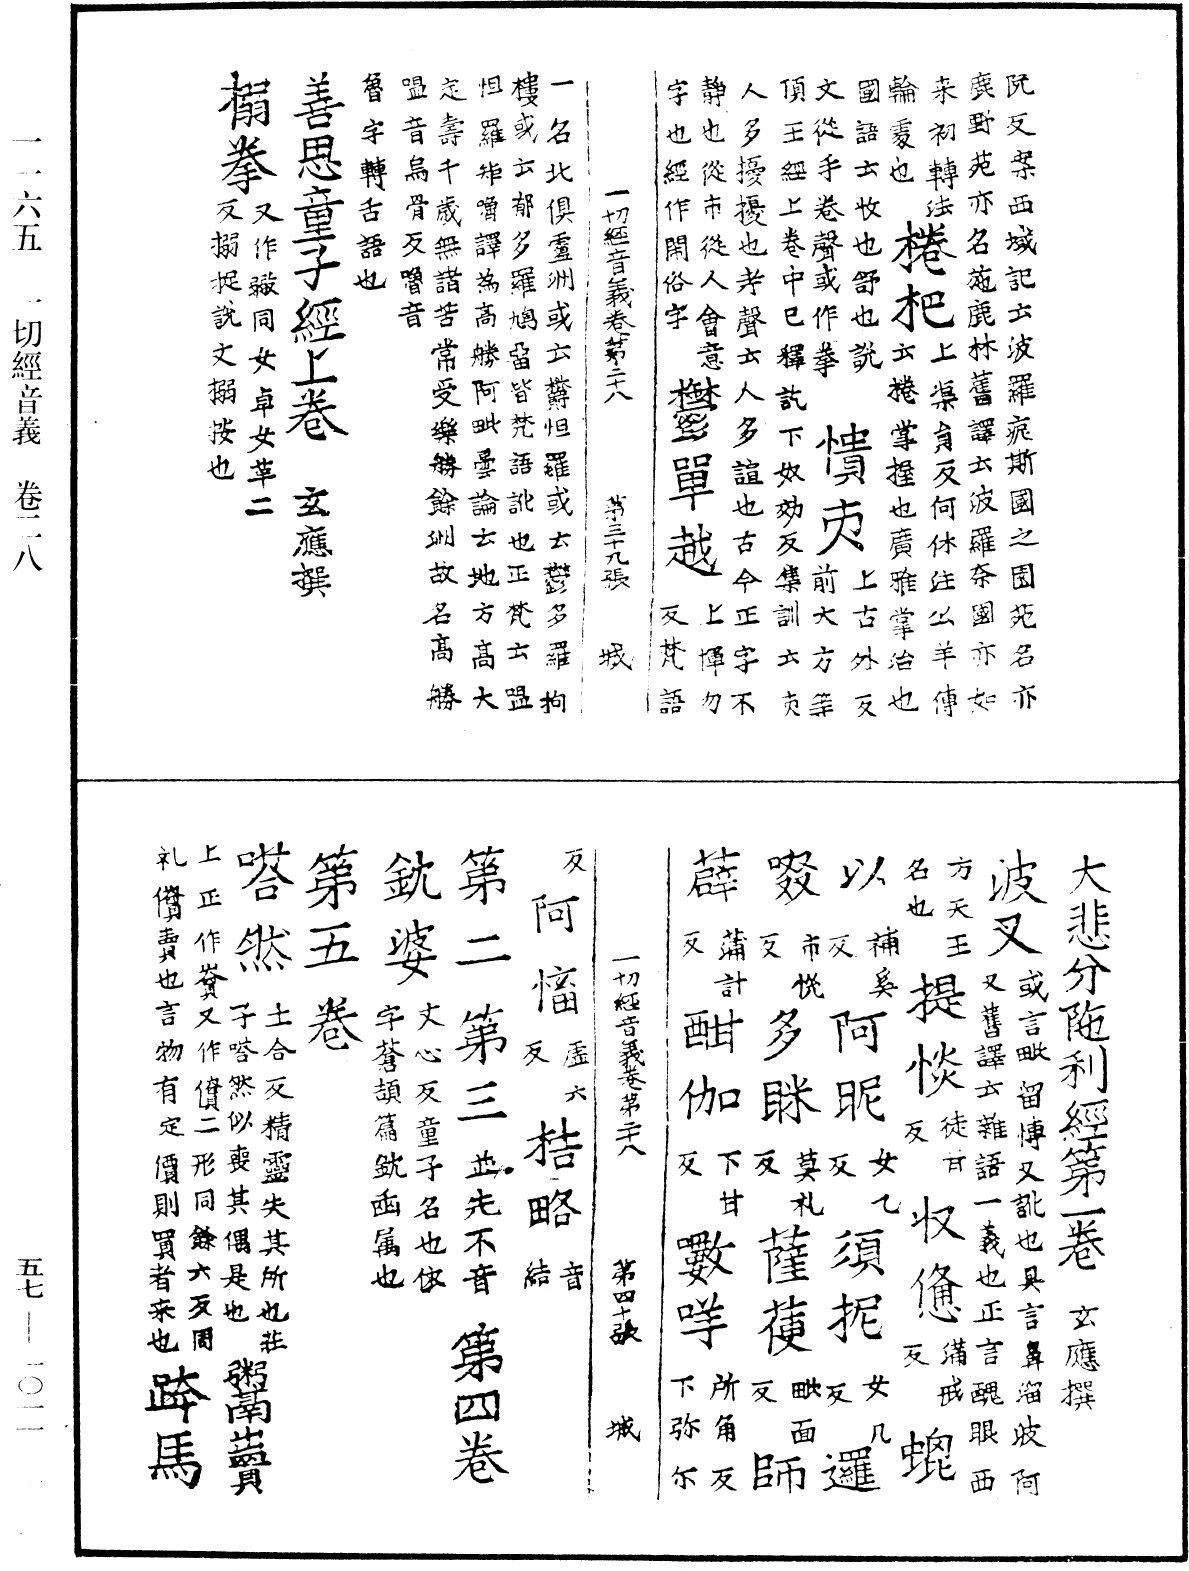 阮反案西域記云波羅痆斯國之囿苑名亦
鹿野苑亦名施鹿林舊譯云波羅奈國亦如
来初轉法
輪處也 棬杷 上渠員反何休注公羊傳
云棬掌握也廣雅掌治也
國語云牧也舒也說
文從手卷聲或作拳 憒吏 上古外反
前大方等
頂王經上卷中已釋訖下奴効反集訓云吏
人多擾擾也考聲云人多諠也古今正字不
静也從市從人會意
字也經作閙俗字 欝單越 上惲勿
反梵語
一切經音義卷第二十八 第三十九張 城
一名北俱盧洲或云欝怛羅或云鬱多羅拘
樓或云郁多羅鳩留皆梵語訛也正梵云嗢
怛羅矩嚕譯為高勝阿毗曇論云地方高大
定壽千歲無諸苦常受樂勝餘洲故名高勝
嗢音烏骨反嚕音
魯字轉舌語也
善思童子經上卷 玄應撰
搦拳 又作㩎同女卓女革二
反搦捉說文搦按也
大悲分陁利經第一卷 玄應撰
波叉 或言毗留博叉訛也具言鼻溜波阿
叉舊譯云雜語一義也正言醜眼西
方天王
名也 提惔 徒甘
反 収憊 蒲戒
反 蜫
以 補奚
反 阿昵 女乙
反 須抳 女几
反 邏
啜 市悅
反 多眯 莫礼
反 薩䔬 毗面
反 師
薜 蒲計
反 酣伽 下甘
反 數哶 所角反
下弥尔
一切經音義卷第二十八 第四十張 城
反 阿慉 虛六
反 桔略 音
結
第二第三 並先不音 第四卷
鈂婆 丈心反童子名也依
字蒼頡篇鈂臿属也
第五卷
嗒然 土合反精靈失其所也莊
子嗒然似喪其偶是也 粥賣
上正作賣又作儥二形同餘六反周
礼儥賣也言物有定價則買者来也 跨馬
一一六五 一切經音義 卷二八
五七—一〇二一